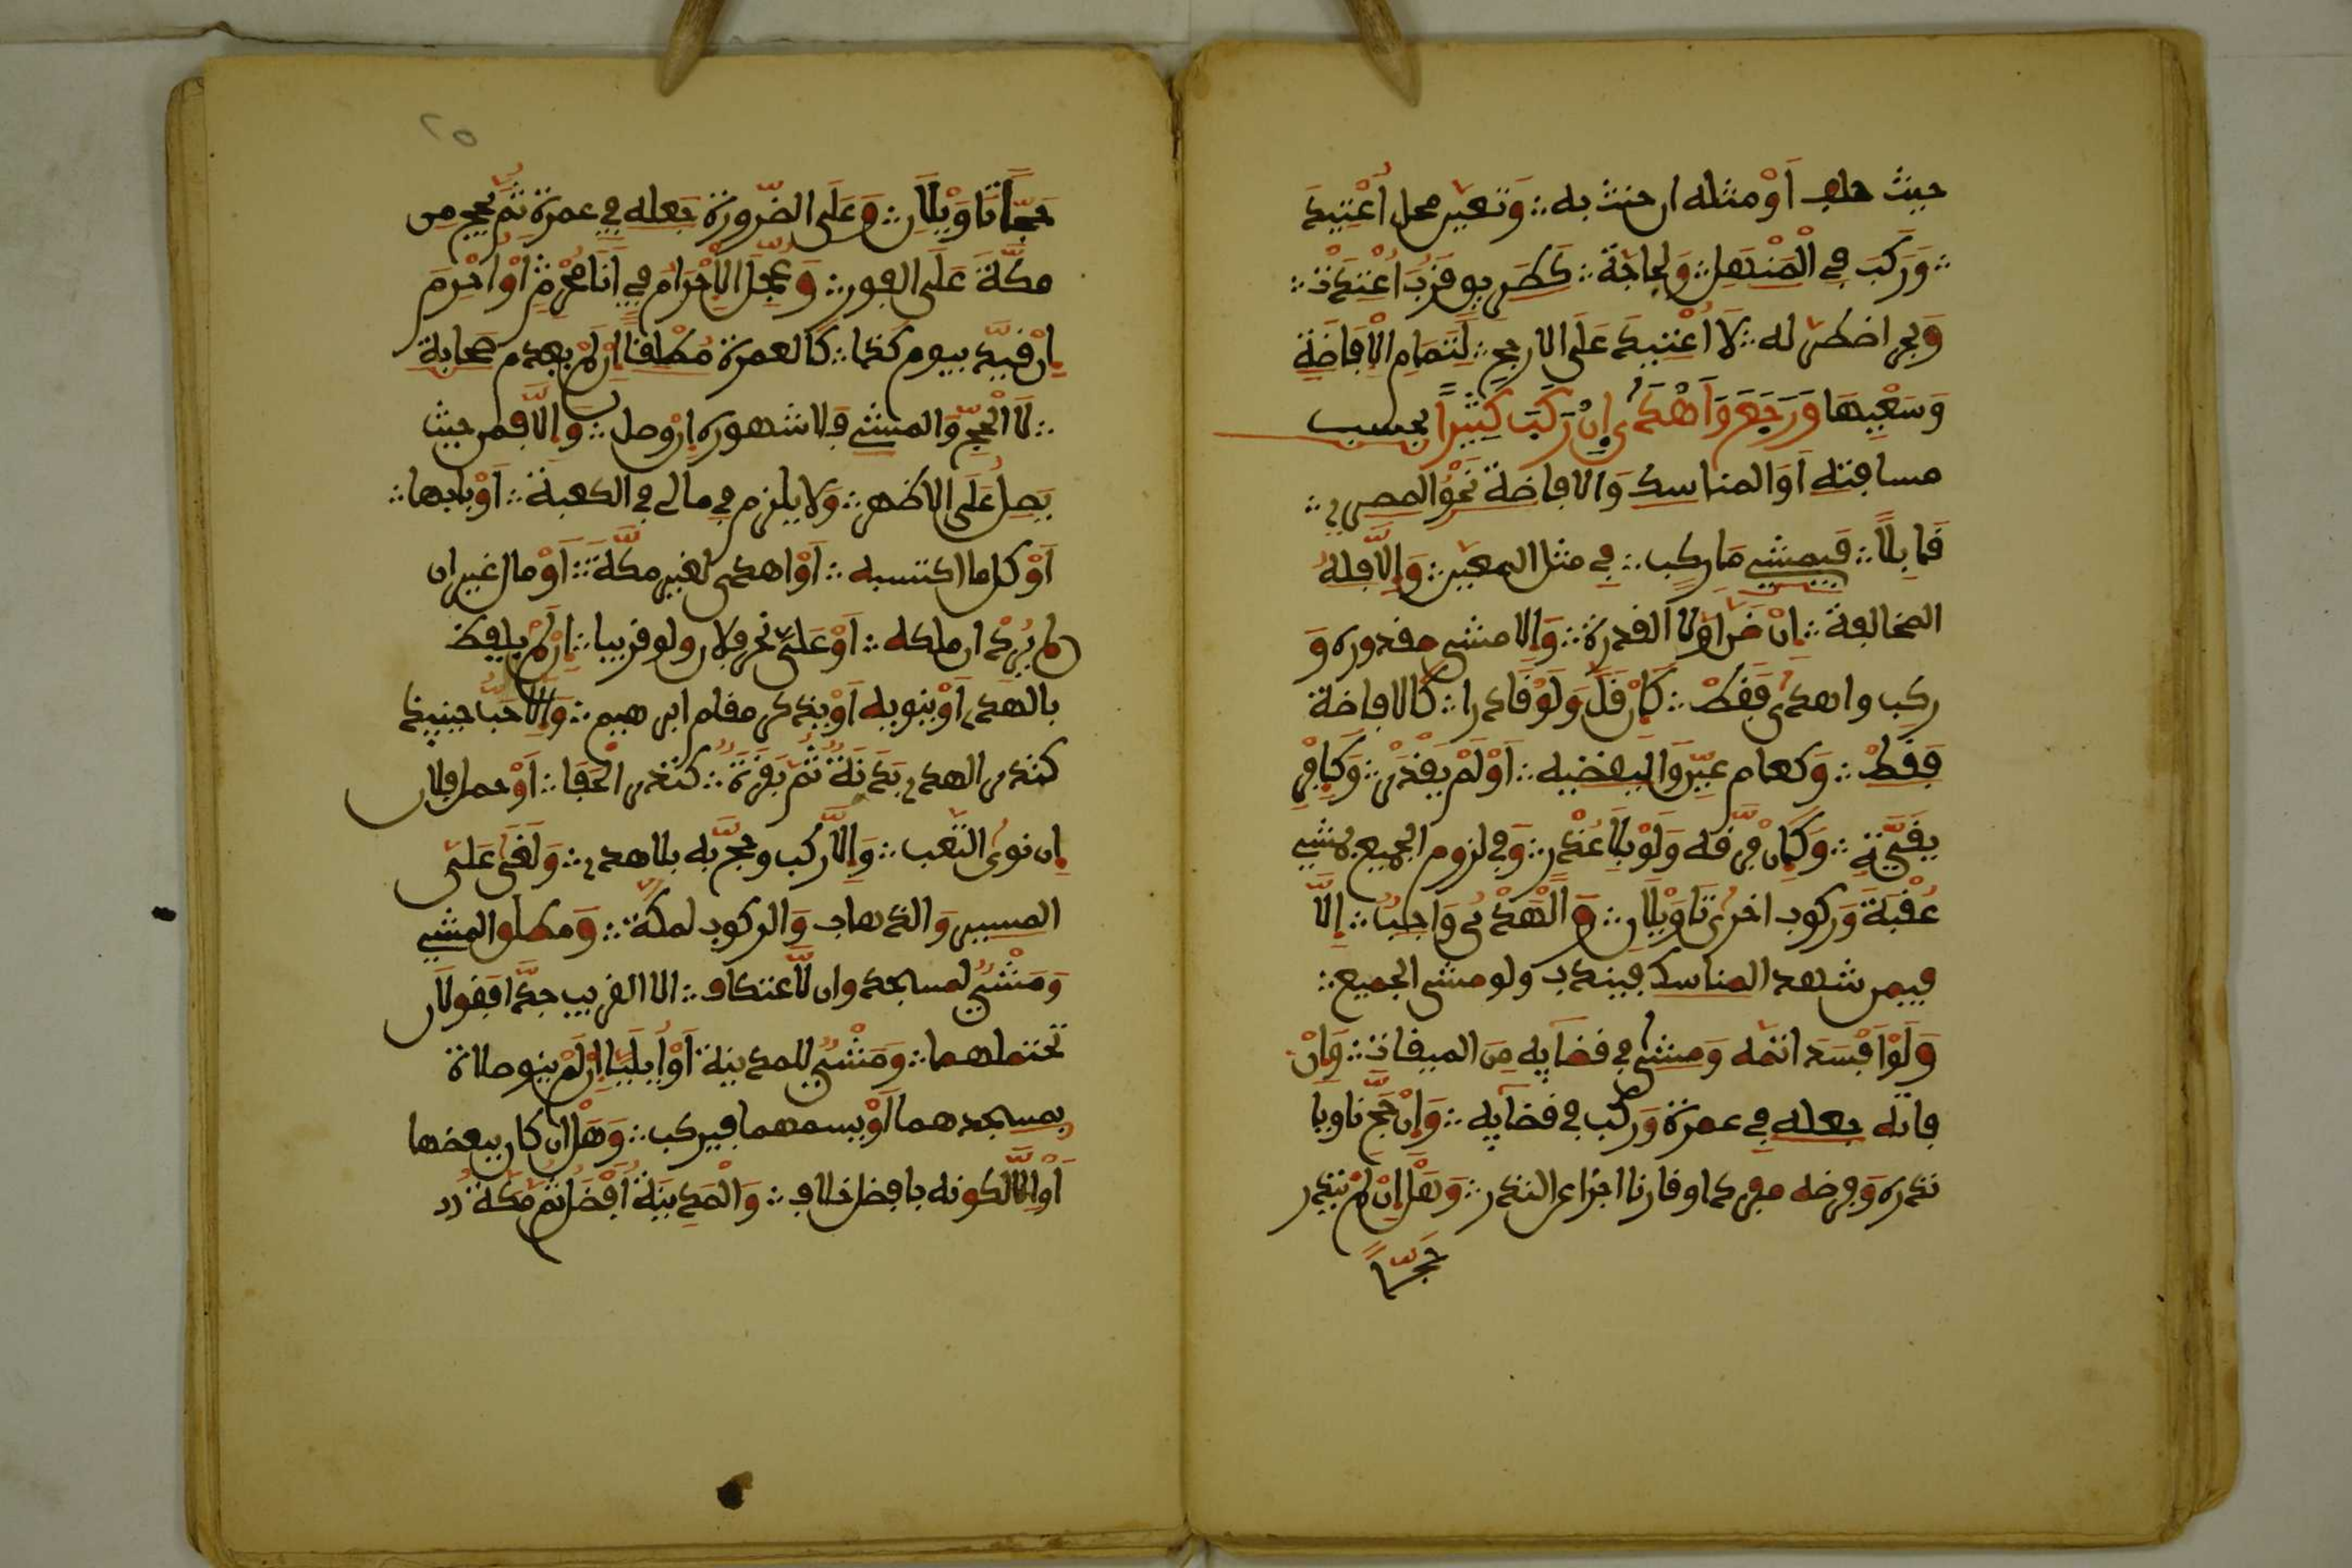 حيث حلف أَوْ مثله ان حنث به ∴ وَتعيّن محل أُعْتِيدَ
∴ وَرَكِبَ فِي الْمَنْهَلِ ∴ وَلِحاجَةٍ ∴ كَطَرِيقٍ قُرْبَى أُعْتِيدَتْ ∴
وَبحرا اضطرّ له ∴ لَا أُعْتِيدَ عَلَى الارجحِ ∴ لِتَمَامِ الْإِفَاضَةِ
وَسَعْيِهَا وَرَجَعَ وَأَهْدَى إِنْ رَكِبَ كَثِيراً بحسب
مسافته أَوَ المناسك وَالافاضة نَحْوُ المصري ∴
قَابِلاً ∴ فَيمشي مَا ركب ∴ فِي مثل المعيّن ∴ وَإِلَّا فله
المخالفة ∴ إِنْ ظَنَّ اولا القدرة ∴ وَإلا مشى مقدوره وَ
ركب واهدى فَقَطْ ∴ كَإِنْ قَلَّ وَلَوْ قَادرا ∴ كَالافاضة
فَقَطْ ∴ وَكعام عيّن وَليقضيه ∴ أَوْ لَمْ يَقْدِرْ ∴ وَكَإِفْرِ
يقيّة ∴ وَكَإِنْ فرَّقه وَلَوْ بِلَا عُذْر ∴ وَفِي لزوم الجميع بمشي
عُقْبَةٍ وَركوب اخرى تَاوِيلَان ∴ وَالْهَدْيُ وَاجِبٌ ∴ إِلَّا
فيمن شهد المناسك فيندب ولو مشى الجميع ∴
وَلَوْ أَفْسَدَ اتمّه وَمشى في قضايه مِنَ الميقات ∴ وَإِنْ
فاته جعله فِي عمرة وَركب فِي قضايه ∴ وَإِنْ حَجَّ ناويا
نذره وَفرضه مفردا وقارنا اجزا عن النذر ∴ وَهَلْ إِنْ لَمْ ينذر
حَجّاً
٢٥
حَجّاً تَاوِيلَان ∴ وَعَلَى الصّرورة جَعله فِي عمرة ثُمَّ يحج من
مكَّةَ عَلَى الفور ∴ وَعجّل الإِحْرَامَ فِي أَنَا مُحْرِمٌ أَوْ احْرِمَ
إِنْ قَيَّد بيوم كَذا ∴ كَالعمرة مُطْلقاً إِنْ لَمْ يعدم صحابة
∴ لَا الْحَجِّ وَالمشي فَلاشهره إِنْ وصل ∴ وَإِلَّا فمن حيث
يَصِلُ عَلَى الاظهر ∴ وَلا يلزم فِي مالي فِي الكعبة ∴ أَوْ بابها ∴
أَوْ كل ما اكتسبه ∴ أَوْ اهدى لغير مكَّةَ ∴ أَوْ مال غير ان
لم يُرِدْ ان ملكه ∴ أَوْ عَلَيَّ نحر فلان ولو قريبا ∴ إِنْ لَمْ يلفظ
بالهدي أَوْ ينويه أَوْ يذكر مقام ابرهيم ∴ وَالاحبّ حينيذ
كنذر الهدي بَدَنَةٌ ثُمَّ بَقَرَةٌ ∴ كنذر الحَفا ∴ أَوْ حمل فلان
إِن نوى التعب ∴ وَإِلَّا ركب وحجَّ به بلا هدي ∴ وَلَغَى عَليّ
المسير وَالذهاب وَالركوب لمكّة ∴ وَمطلق المشي
وَمَشْيٌ لمسجد وان لاعتكاف ∴ الا القريب جدّا فَقولان
تحتملهما ∴ وَمَشْيٌ للمدينة أَوْ إِيلِيَا إِنْ لَمْ ينو صلاة
بمسجدهما أَوْ يسمهما فيركب ∴ وَهَلْ ان كان ببعضها
أَوْ إلا لكونه بافضل خلاف ∴ وَالْمَدِينَةُ أَفْضَلُ ثُمَّ مَكّةُ